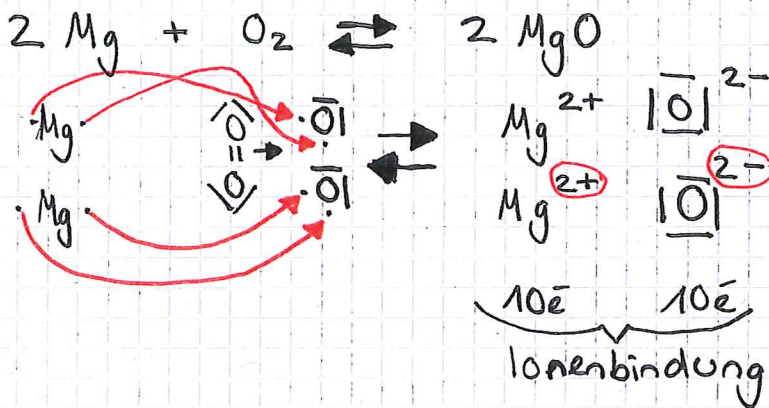 2 Mg + O₂ ⇄ 2 MgO
·Mg· |O̅ = O̲| → ·O̅|· ⇄ Mg²⁺ |O̲̅|²⁻
·Mg· ·O̅|· Mg²⁺ |O̲̅|²⁻
10e̅ 10e̅
Ionenbindung